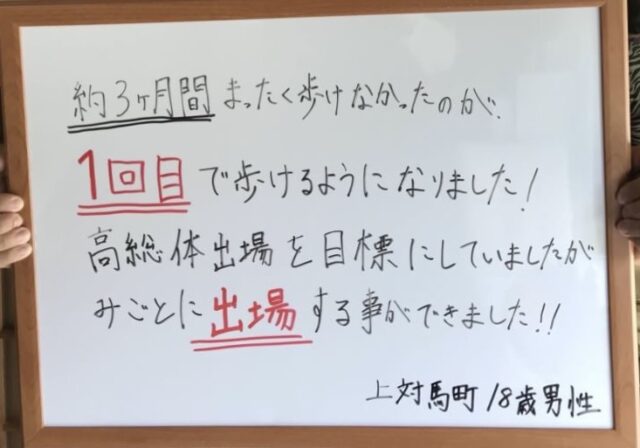 約3ヶ月間まったく歩けなかったのが、
1回目で歩けるようになりました!
高総体出場を目標にしていましたが
みごとに出場する事ができました!!
上対馬町 18歳男性